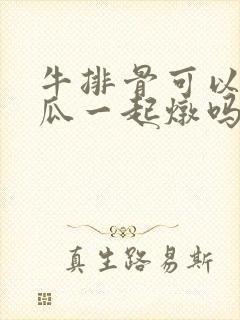 牛排骨可以
瓜一起燉吗
真生路易斯